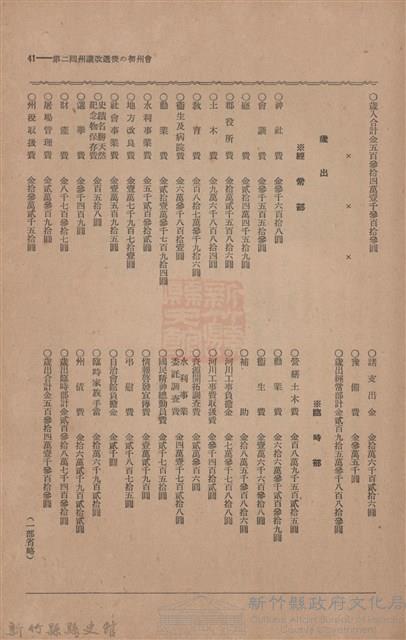 41——第二回州議改選後の初州會
○歲入合計金五百參拾四萬壹千參百拾參圓
× × ×
歲出
※經常部
○神社費 金參千六百拾八圓
○會議費 金參千五百五拾參圓
○廳費 金貳拾四萬五千五拾九圓
○郡役所費 金拾貳萬五百八拾六圓
○土木費 金九萬六千八百八拾四圓
○教育費 金百八拾七萬參千九拾六圓
○衞生及病院費 金六萬參千八百拾壹圓
○勸業費 金貳拾壹萬參千七百六拾四圓
○水利事業費 金五千貳百參拾貳圓
○地方改良費 金壹萬七千九百七拾壹圓
○社會事業費 金壹萬五千五百五拾五圓
○史蹟名勝天然紀念物保存費 金百五拾八圓
○選擧費 金參千四百九圓
○財產費 金八千七百參拾七圓
○屠場管理費 金貳萬參百九拾圓
○州稅取扱費 金拾參萬貳千五拾圓
○諸支出金 金拾萬六千百貳拾六圓
○豫備費 金參萬五千圓
○歲出經常部計金貳百九拾五萬參千八百八拾參圓
※臨時部
○營繕土木費 金百八萬九千五百貳拾五圓
○勸業費 金拾六萬參千貳百參拾八圓
○衞生費 金壹萬六千六百參拾八圓
○補助 金拾八萬五千參百八拾六圓
○河川工事費負擔金 金七萬參千八百拾八圓
○河川工事費取扱費 金參千四百貳拾八圓
○資源開拓調査費 金貳萬參百六圓
○水利事業委託調査費 金四萬壹千七百貳拾八圓
○國民精神總動員費 金貳千七百五拾圓
○情報啓發宣傳費 金壹萬貳千九百圓
○自治會館負擔金 金貳百圓
○弔慰費 金貳千八百七拾五圓
○臨時家族手當 金拾萬六千九百四圓
○州債費 金拾六萬貳千九百貳拾圓
○歲出臨時部計金貳百參拾八萬七千四百參拾圓
○歲出合計金五百參拾四萬壹千參百拾參圓
(一部省略)
新竹縣縣史館
新竹縣政府文化局
Cultural Affairs Bureau of Hsinchu County Government